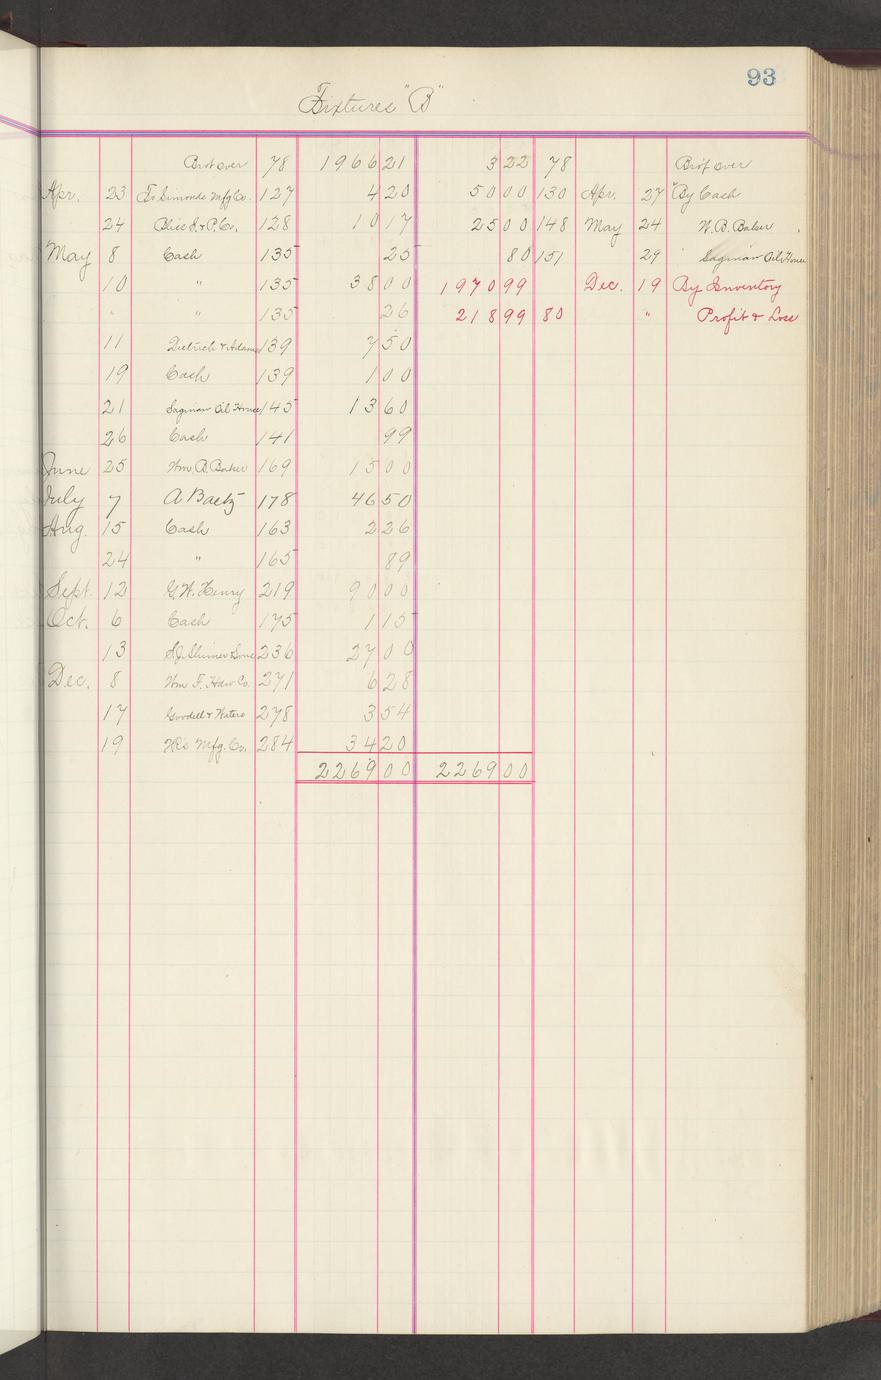 93
Fixtures "B"
Brot over 78 1966 21 3 22 78 Brot over
Apr. 23 To Simonds Mfg Co. 127 4 20 50 00 130 Apr. 27 By Cash
24 Bliss & P. Co. 128 10 17 25 00 148 May 24 W. B. Baker
May 8 Cash 135 25 80 151 29 Saginaw Oil House
10 " 135 38 00 1970 99 Dec. 19 By Inventory
" " 135 26 218 99 80 " Profit & Loss
11 Dietrich & Adams 139 7 50
19 Cash 139 1 00
21 Saginaw Oil House 145 13 60
26 Cash 141 99
June 25 Wm. B. Baker 169 15 00
July 7 A Baetz 178 46 50
Aug. 15 Cash 163 2 26
24 " 165 89
Sept. 12 G. W. Henry 219 90 00
Oct. 6 Cash 175 1 15
13 S. J. Shimer Sons 236 27 00
Dec. 8 Wm F. Hdw Co. 271 6 28
17 Goodell & Waters 278 3 54
19 Mfg. Co. 284 34 20
2269 00 2269 00